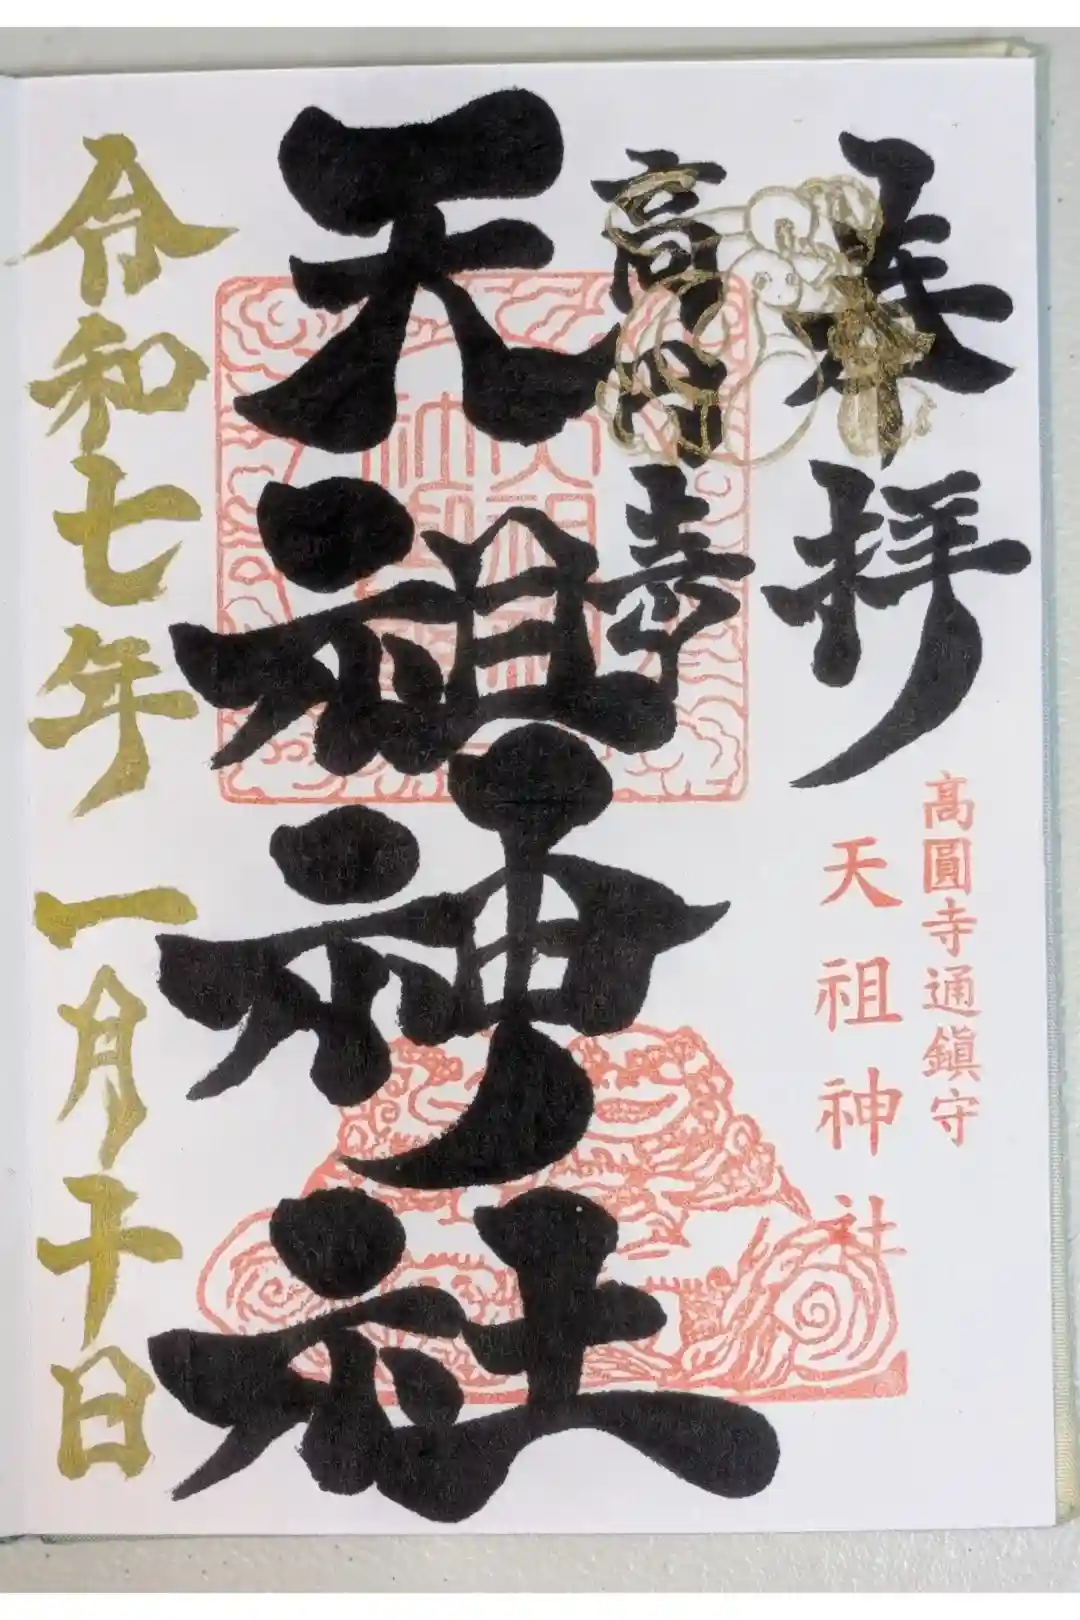 奉拝
高圓寺通鎮守
天祖神社
高円寺
天祖神社
令和七年一月十日